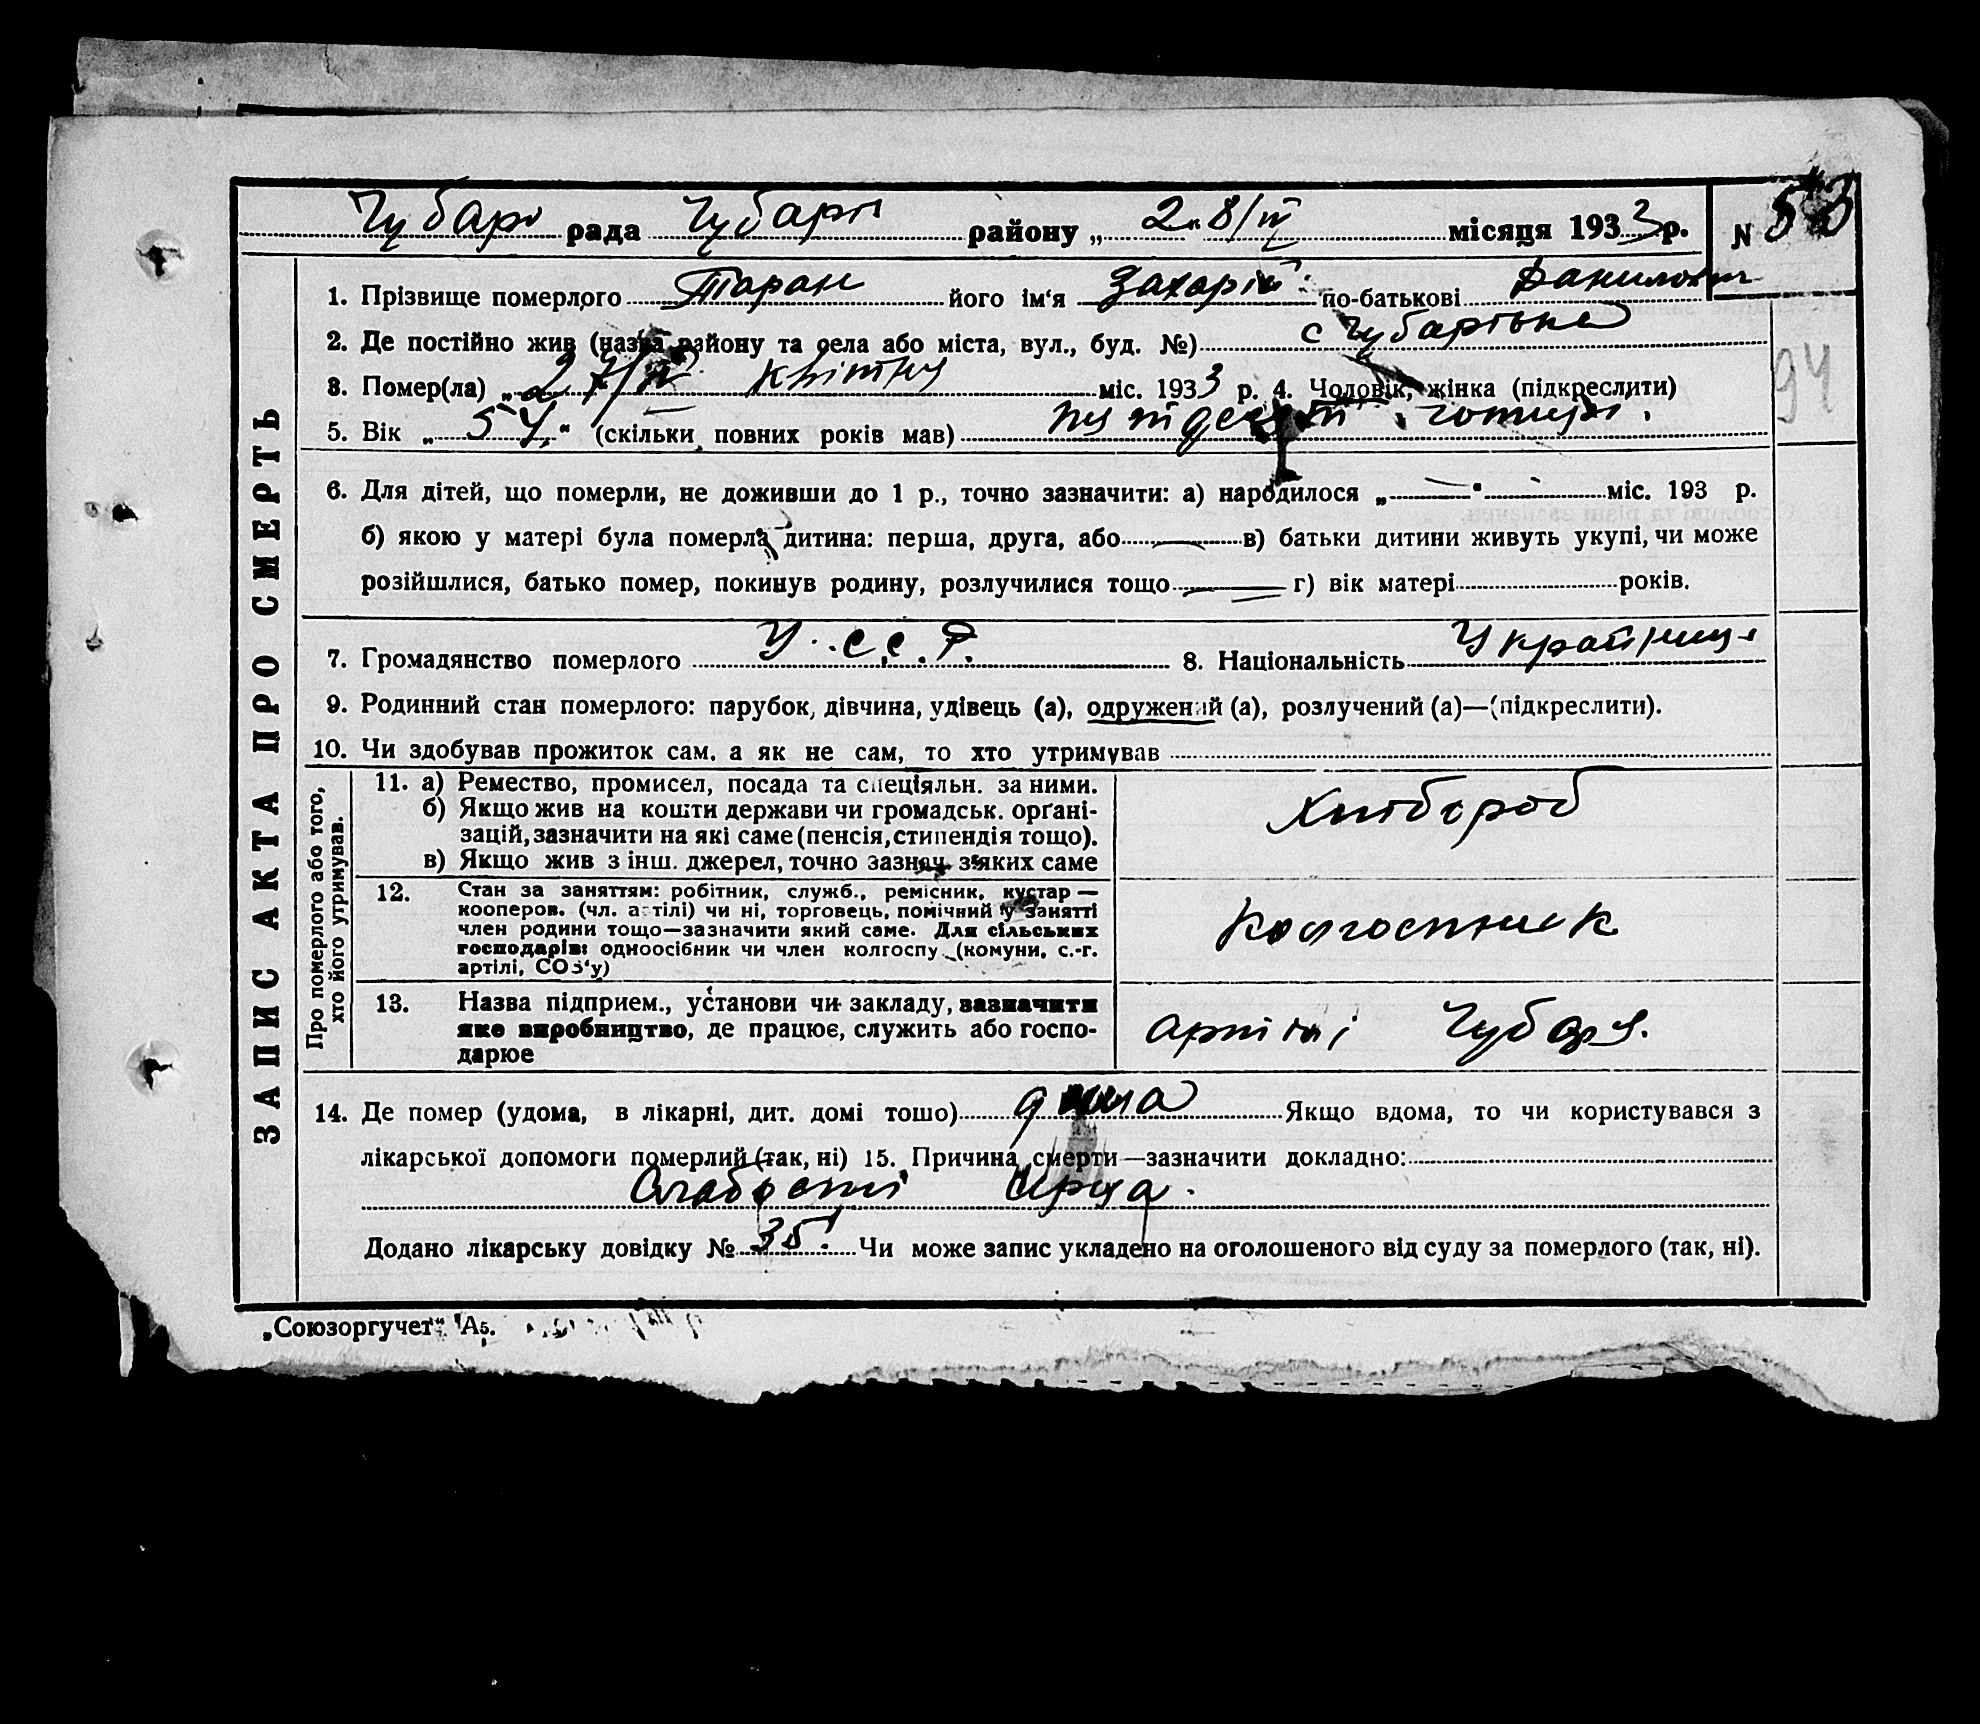 Чубар рада Чубарі району „ 28/IV місяця 1933 р. N 53
1. Прізвище померлого Таран його ім‘я Захарій по-батькові Данилович
2. Де постійно жив (назва району та села або міста, вул., буд. №) с Чубарівка
94
3. Помер(ла) „ 27/IV квітня міс. 1933 р. 4. Чоловік, жінка (підкреслити)
5. Вік „ 54 “ (скільки повних років мав) пятдесят чотири.
6. Для дітей, що померли, не доживши до 1 р., точно зазначити: а) народилося „ — “ — міс. 193 р.
б) якою у матері була померла дитина: перша, друга, або — в) батьки дитини живуть укупі, чи може
розійшлися, батько помер, покинув родину, розлучилися тощо — г) вік матері років.
7. Громадянство померлого У.С.С.Р. 8. Національність
9. Родинний стан померлого: парубок, дівчина, удівець (а), одружений (а), розлучений (а)—(підкреслити).
10. Чи здобував прожиток сам, а як не сам, то хто утримував
ЗАПИС АКТА ПРО СМЕРТЬ
Про померлого або того, хто його утримував.
11. а) Ремество, промисел, посада та спеціяльн. за ними.
б) Якщо жив на кошти держави чи громадськ. орґані-
зацій, зазначити на які саме (пенсія, стипендія тощо).
в) Якщо жив з інш. джерел, точно зазнач. з яких саме
Хлібороб
12. Стан за заняттям: робітник, служб., ремісник, кустар —
кооперов. (чл. артілі) чи ні, торговець, помічний у занятті
член родини тощо—зазначити який саме. Для сільських
господарів: одноосібник чи член колгоспу (комуни, с.-г.
артілі, СОЗ‘у)
Колгоспник
13. Назва підприєм., установи чи закладу, зазначити
яке виробництво, де працює, служить або госпо-
дарює
артілі Чубаря.
14. Де помер (удома, в лікарні, дит. домі тошо) дома Якщо вдома, то чи користувався з
лікарської допомоги померлий (так, ні) 15. Причина смерти—зазначити докладно:
Слабости серця.
Додано лікарську довідку № 35 Чи може запис укладено на оголошеного від суду за померлого (так, ні).
„Союзоргучет“ А5.